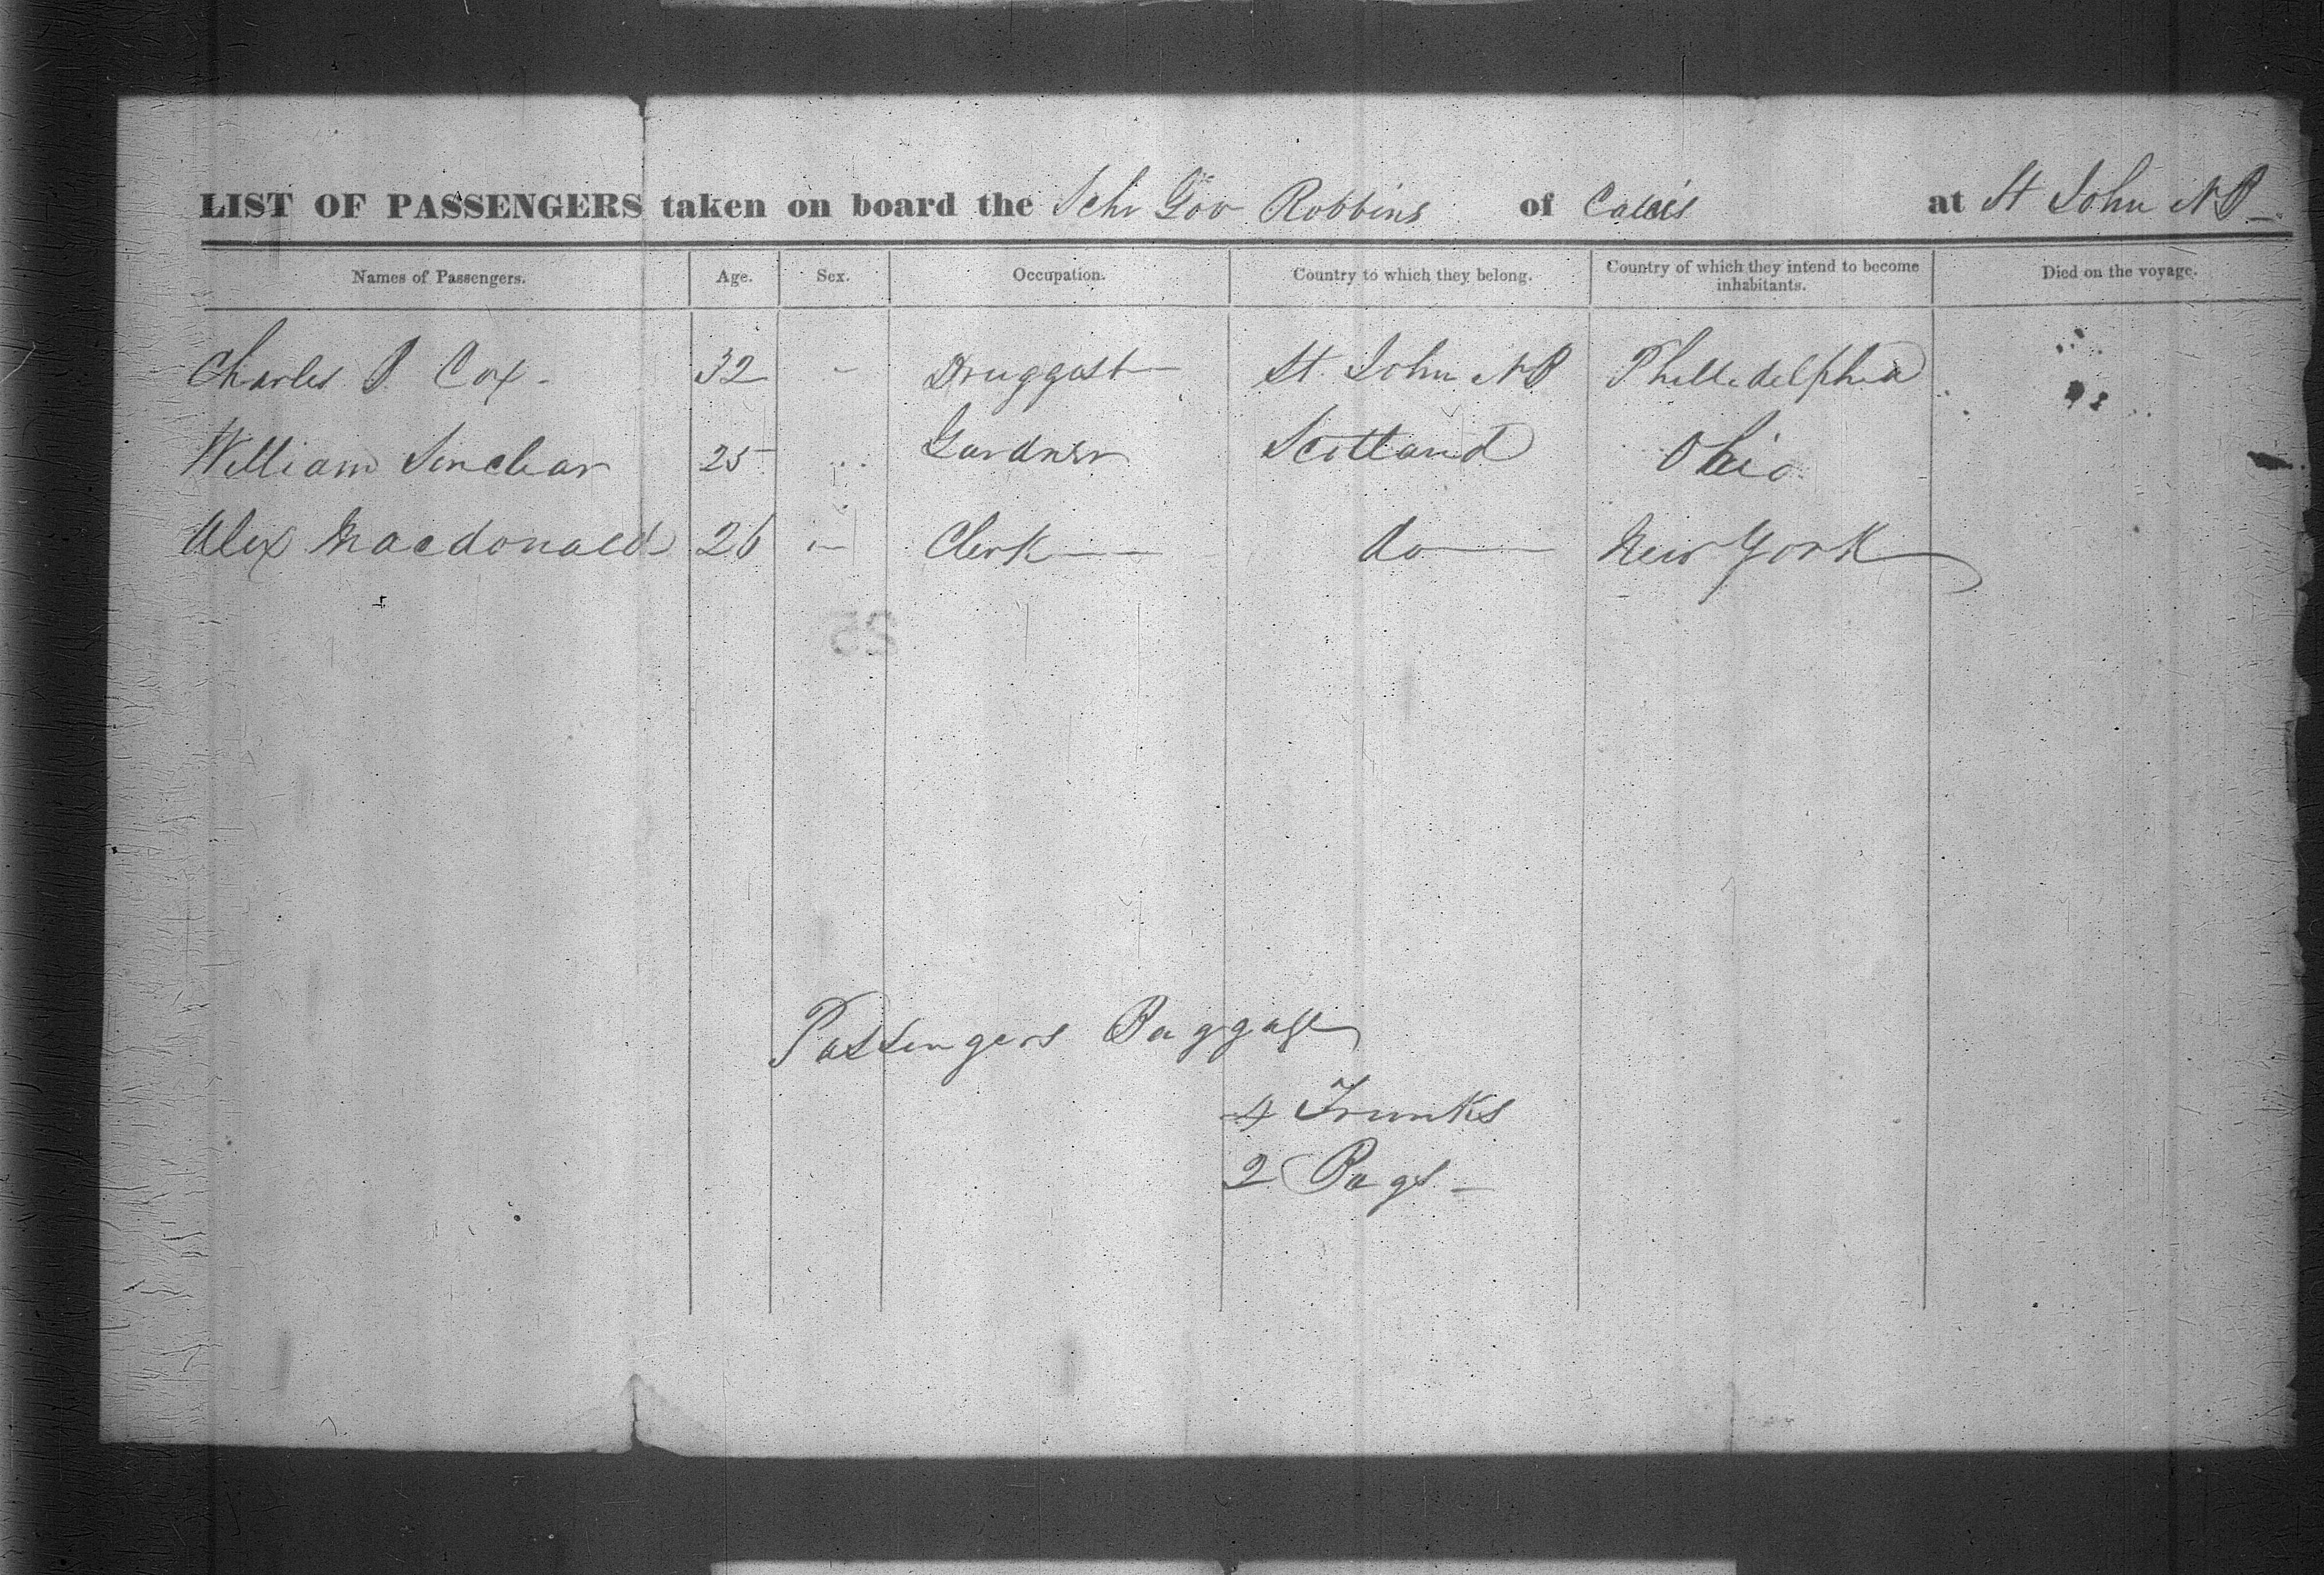 LIST OF PASSENGERS taken on board the Schr Gov Robbins of Calais at St John NB
Names of Passengers. Age. Sex. Occupation. Country to which they belong. Country of which they intend to become inhabitants. Died on the voyage.
Charles P Cox - 32 - Druggast St. John NB Philledelphia
William Sinclear 25 Gardner Scotland Ohio
Alex Macdonald 26 - Clerk do New York
25
Passengers Baggage
4 Trunks
2 Bags -